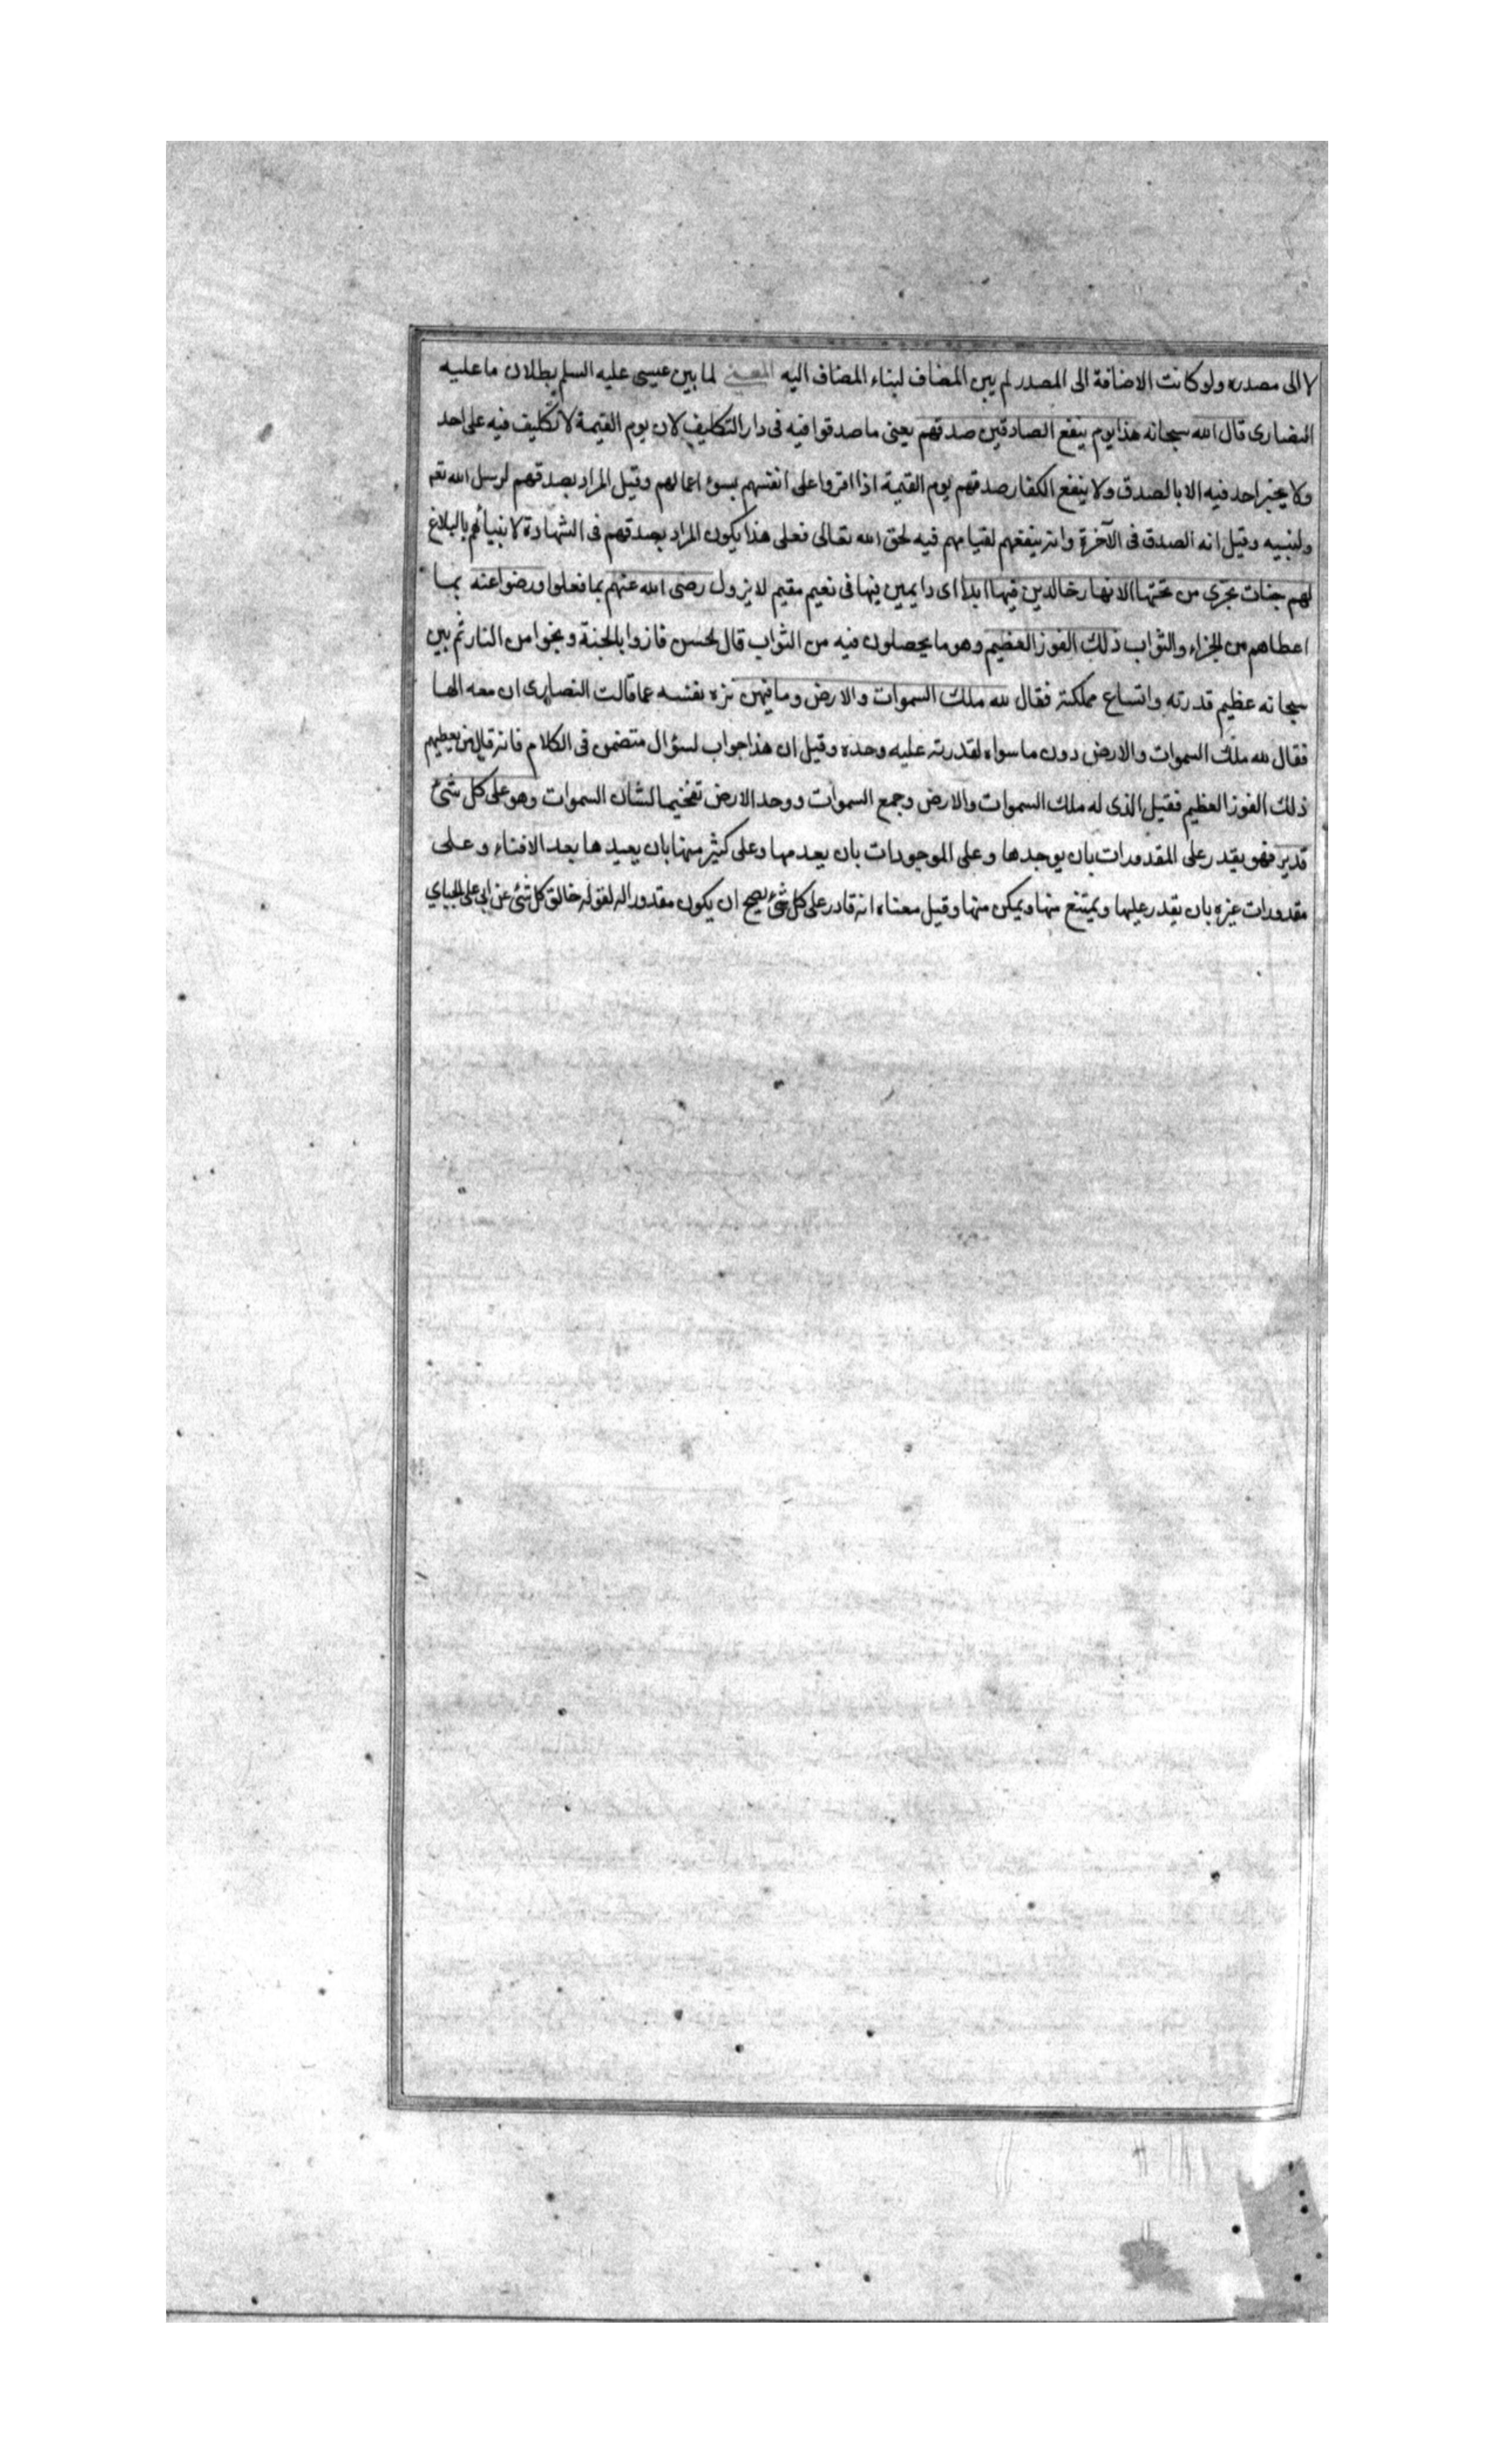 لا الى مصدره ولو كانت الاضافة الى المصدر لم يبن المضاف لبناء المضاف اليه المعنى لما بين عيسى عليه السلم بطلان ما عليه
النصارى قال الله سبحانه هذا يوم ينفع الصادقين صدقهم يعنى ما صدقوا فيه فى دار التكليف لان يوم القيمة لا تكليف فيه على احد
ولا يخبر احد فيه الا بالصدق ولا ينفع الكفار صدقهم يوم القيمة اذا اقروا على انفسهم بسوء اعمالهم وقيل المراد بصدقهم لرسل الله تعم
ولنبيه وقيل انه الصدق فى الآخرة وانه ينفعهم لقيامهم فيه لحق الله تعالى فعلى هذا يكون المراد بصدقهم فى الشهادة لانبيائهم بالبلاغ
لهم جنات تجرى من تحتها الانهار خالدين فيها ابدا اى دايمين فيها فى نعيم مقيم لا يزول رضى الله عنهم بما فعلوا ورضوا عنه بما
اعطاهم من الجزاء والثواب ذلك الفوز العظيم وهو ما يحصلون فيه من الثواب قال الحسن فازوا بالجنة ونجوا من النار ثم بين
سبحانه عظيم قدرته واتساع مملكته فقال لله ملك السموات والارض وما فيهن نزه نفسه عما قالت النصارى ان معه الها
فقال لله ملك السموات والارض دون ما سواه لقدرته عليه وحده وقيل ان هذا جواب لسؤال متضمن فى الكلام فانه قال من يعطيهم
ذلك الفوز العظيم فقيل الذى له ملك السموات والارض وجمع السموات ووحد الارض تفخيما لشان السموات وهو على كل شئ
قدير فهو يقدر على المقدورات بان يوجدها وعلى الموجودات بان يعدمها وعلى كثير منها بان يعيدها بعد الافناء وعلى
مقدورات غيره بان يقدر عليها ويمتنع منها ويمكن منها وقيل معناه انه قادر على كل شئ يصح ان يكون مقدورا له لقوله خالق كل شئ عن ابى على الجباي